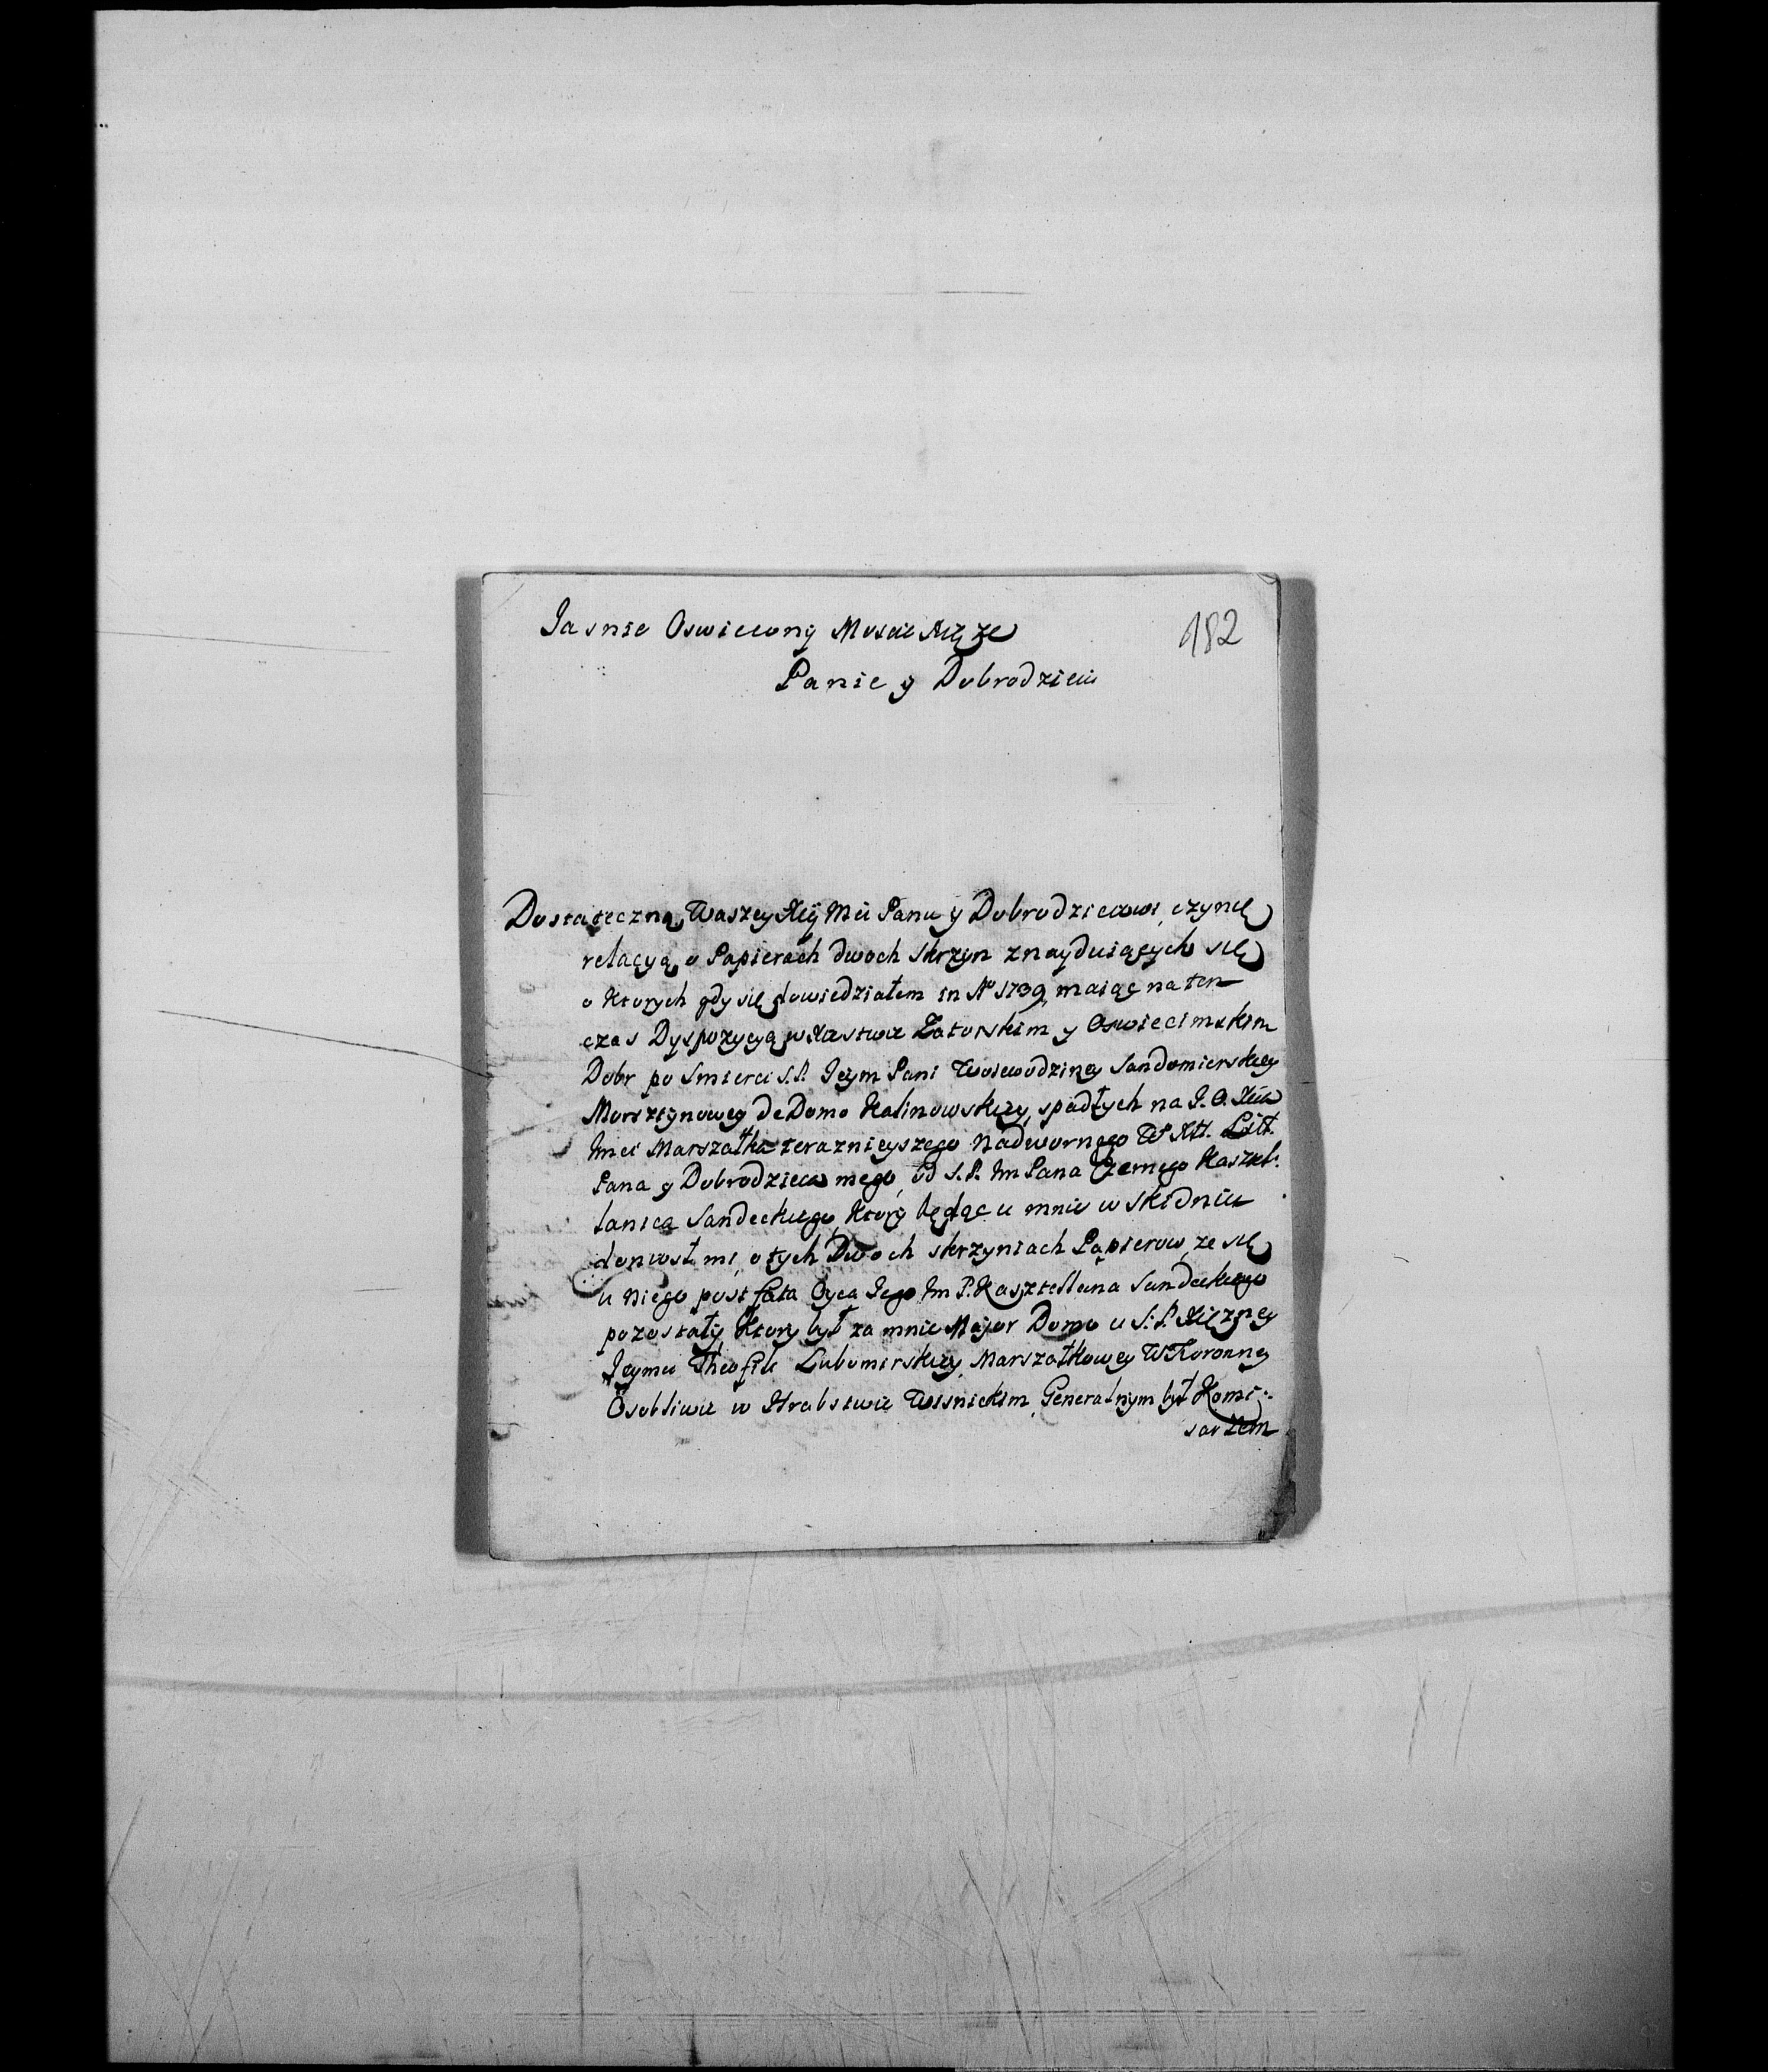 Jasnie Oswiecony Mosci Xiąze
182
Panie y Dobrodzieiu
Dostateczną Waszey Xcy Mci Panu y Dobrodzieiowi, czynię
relacyą o Papierach dwoch skrzyn znayduiących się
o ktorych gdy się dowiedziałem in Aº 1739 maiąc na ten
czas Dyspozycyą w Xięstwie Zatorskim y Oswiecimskim
Dobr po Smierci S.P. Jeym Pani Woiewodziney Sandomierskiey
Morsztynowey de Domo Kalinowskiey, spadłych na J.O. Xcia
Imci Marszałka teraznieyszego Nadwornego W X Litt.
Pana y Dobrodzieia mego, od S.P. Im Pana Czernego Kasztel:
lanica Sandeckiego, ktory będąc u mnie w Skidniu
doniosł mi, o tych Dwoch skrzyniach Papierow, ze się
u niego post fata Oyca Jego Im P. Kasztellana Sandeckiego
pozostały, ktory był za mnie Major Domo u S.P. Xięzney
Jeymci Theofili Lubomirskiey Marszałkowey W Koronney
Osobliwie w Hrabstwie Wisnickim, Generalnym był Komi:
sarzem